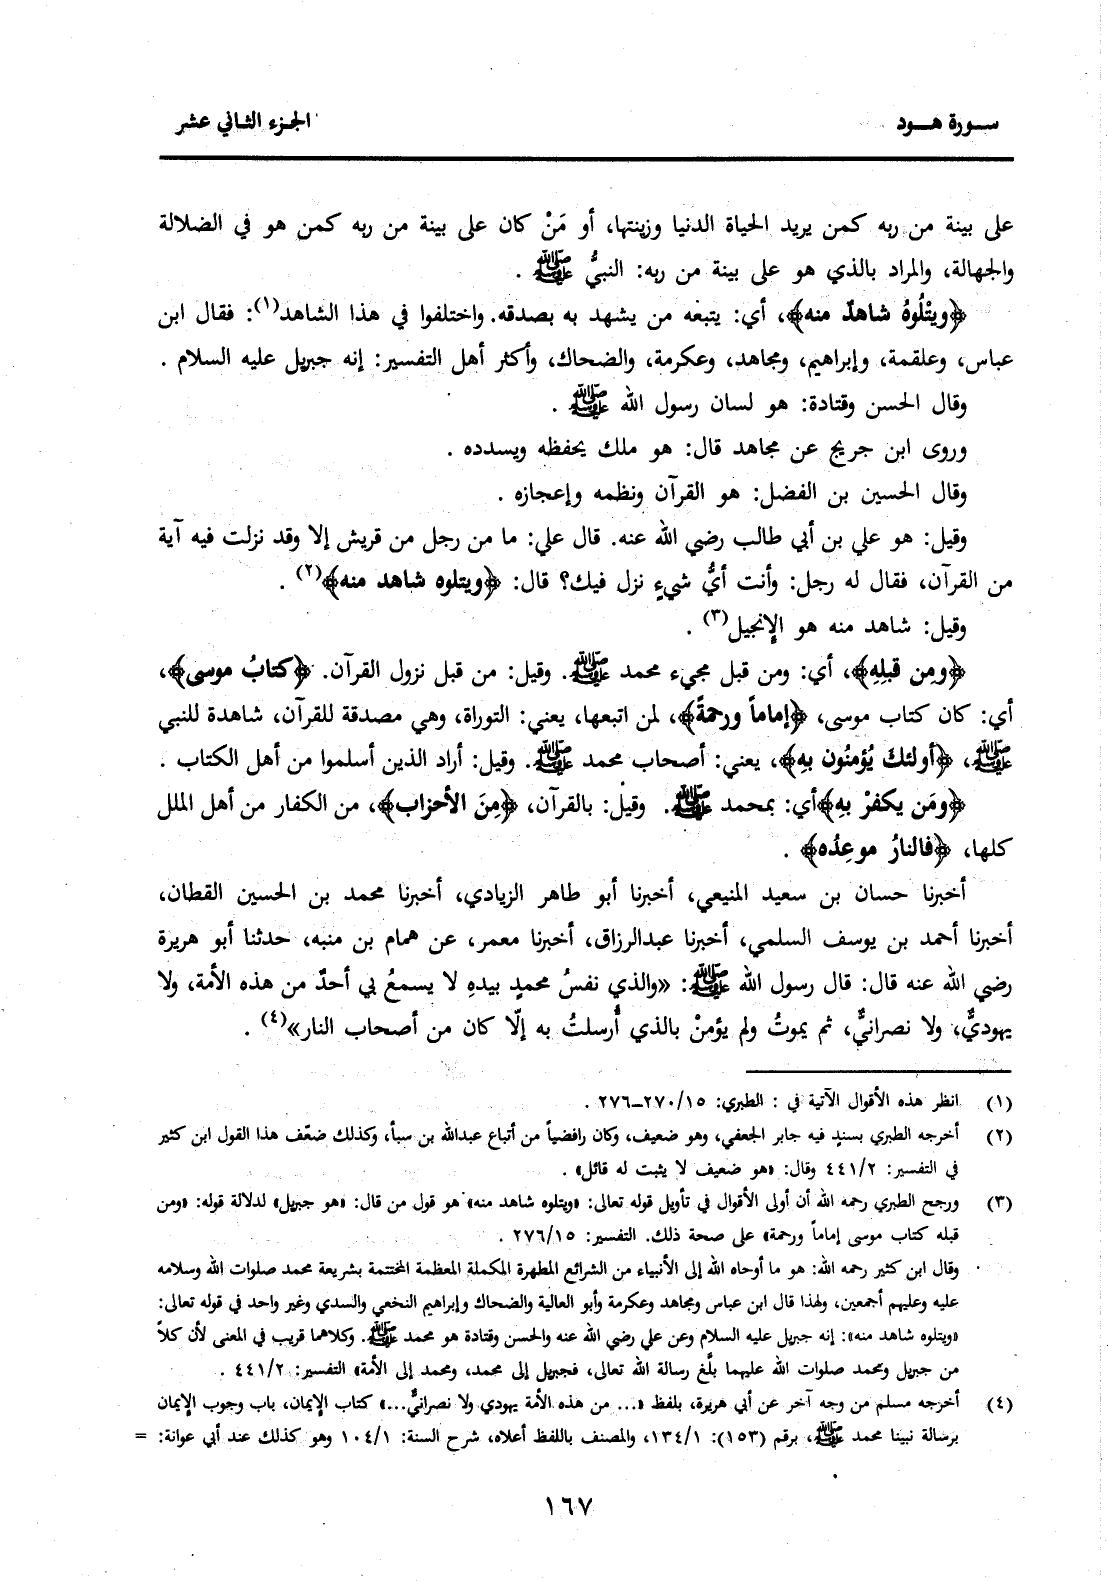 سورة هود
الجزء الثاني عشر
على بينة من ربه كمن يريد الحياة الدنيا وزينتها، أو مَنْ كان على بينة من ربه كمن هو في الضلالة
والجهالة، والمراد بالذي هو على بينة من ربه: النبيُّ ﷺ .
﴿ويتْلُوهُ شاهدٌ منه﴾، أي: يتبعه من يشهد به بصدقه. واختلفوا في هذا الشاهد(١): فقال ابن
عباس، وعلقمة، وإبراهيم، ومجاهد، وعكرمة، والضحاك، وأكثر أهل التفسير: إنه جبريل عليه السلام .
وقال الحسن وقتادة: هو لسان رسول الله ﷺ .
وروى ابن جريج عن مجاهد قال: هو ملك يحفظه ويسدده .
وقال الحسين بن الفضل: هو القرآن ونظمه وإعجازه .
وقيل: هو علي بن أبي طالب رضي الله عنه. قال علي: ما من رجل من قريش إلا وقد نزلت فيه آية
من القرآن، فقال له رجل: وأنت أيُّ شيءٍ نزل فيك؟ قال: ﴿ويتلوه شاهد منه﴾(٢) .
وقيل: شاهد منه هو الإنجيل(٣) .
﴿ومِن قبلِهِ﴾، أي: ومن قبل مجيء محمد ﷺ. وقيل: من قبل نزول القرآن. ﴿كتابُ موسى﴾،
أي: كان كتاب موسى، ﴿إماماً ورحمةً﴾، لمن اتبعها، يعني: التوراة، وهي مصدقة للقرآن، شاهدة للنبي
ﷺ، ﴿أولئكَ يُؤمنُون بهِ﴾، يعني: أصحاب محمد ﷺ. وقيل: أراد الذين أسلموا من أهل الكتاب .
﴿ومَن يكفرْ بهِ﴾أي: بمحمد ﷺ. وقيل: بالقرآن، ﴿مِنَ الأحزاب﴾، من الكفار من أهل الملل
كلها، ﴿فالنارُ موعِدُه﴾ .
أخبرنا حسان بن سعيد المنيعي، أخبرنا أبو طاهر الزيادي، أخبرنا محمد بن الحسين القطان،
أخبرنا أحمد بن يوسف السلمي، أخبرنا عبدالرزاق، أخبرنا معمر، عن همام بن منبه، حدثنا أبو هريرة
رضي الله عنه قال: قال رسول الله ﷺ: «والذي نفسُ محمدٍ بيدهِ لا يسمعُ بي أحدٌ من هذه الأمة، ولا
يهوديٌّ، ولا نصرانيٌّ، ثم يموتُ ولم يؤمنْ بالذي أُرسلتُ به إلّا كان من أصحاب النار»(٤) .
(١) انظر هذه الأقوال الآتية في : الطبري: ١٥/٢٧٠-٢٧٦ .
(٢) أخرجه الطبري بسندٍ فيه جابر الجعفي، وهو ضعيف، وكان رافضياً من أتباع عبدالله بن سبأ، وكذلك ضعّف هذا القول ابن كثير
في التفسير: ٤٤١/٢ وقال: «هو ضعيف لا يثبت له قائل» .
(٣) ورجح الطبري رحمه الله أن أولى الأقوال في تأويل قوله تعالى: «ويتلوه شاهد منه» هو قول من قال: «هو جبريل» لدلالة قوله: «ومن
قبله كتاب موسى إماماً ورحمة» على صحة ذلك. التفسير: ٢٧٦/١٥ .
وقال ابن كثير رحمه الله: هو ما أوحاه الله إلى الأنبياء من الشرائع المطهرة المكملة المعظمة المختتمة بشريعة محمد صلوات الله وسلامه
عليه وعليهم أجمعين، ولهذا قال ابن عباس ومجاهد وعكرمة وأبو العالية والضحاك وإبراهيم النخعي والسدي وغير واحد في قوله تعالى:
«ويتلوه شاهد منه»: إنه جبريل عليه السلام وعن علي رضي الله عنه والحسن وقتادة هو محمد ﷺ. وكلاهما قريب في المعنى لأن كلاً
من جبريل ومحمد صلوات الله عليهما بلَّغ رسالة الله تعالى، فجبريل إلى محمد، ومحمد إلى الأمة» التفسير: ٤٤١/٢ .
(٤) أخرجه مسلم من وجه آخر عن أبي هريرة، بلفظ «... من هذه الأمة يهودي ولا نصرانيٌّ...» كتاب الإيمان، باب وجوب الإيمان
برسالة نبينا محمد ﷺ، برقم (١٥٣): ١٣٤/١، والمصنف باللفظ أعلاه، شرح السنة: ١٠٤/١ وهو كذلك عند أبي عوانة: =
١٦٧